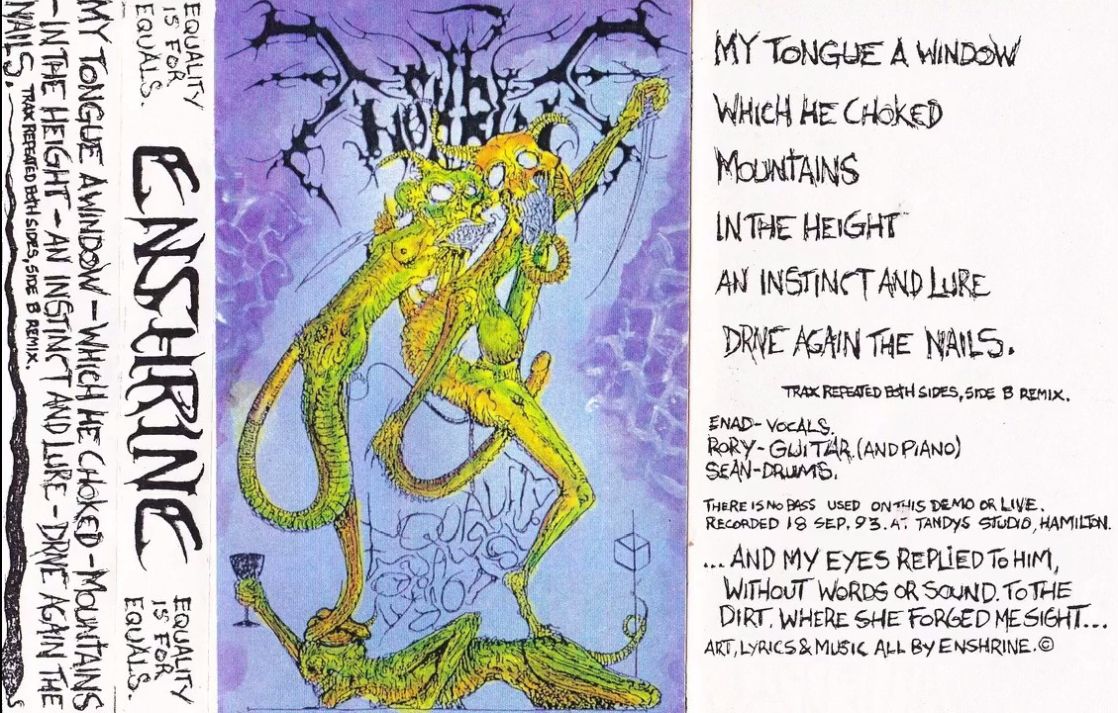 MY TONGUE A WINDOW – WHICH HE CHOKED – MOUNTAINS
– IN THE HEIGHT – AN INSTINCT AND LURE – DRIVE AGAIN THE
NAILS. TRAX REPEATED BOTH SIDES, SIDE B REMIX.
EQUALITY
IS FOR
EQUALS.
ENSHRINE
EQUALITY
IS FOR
EQUALS.
MY TONGUE A WINDOW
WHICH HE CHOKED
MOUNTAINS
IN THE HEIGHT
AN INSTINCT AND LURE
DRIVE AGAIN THE NAILS.
TRAX REPEATED BOTH SIDES, SIDE B REMIX.
ENAD- VOCALS.
RORY- GUITAR. (AND PIANO)
SEAN- DRUMS.
THERE IS NO BASS USED ON THIS DEMO OR LIVE.
RECORDED 18 SEP. 93. AT TANDYS STUDIO, HAMILTON.
... AND MY EYES REPLIED TO HIM,
WITHOUT WORDS OR SOUND. TO THE
DIRT. WHERE SHE FORGED ME SIGHT...
ART, LYRICS & MUSIC ALL BY ENSHRINE. ©